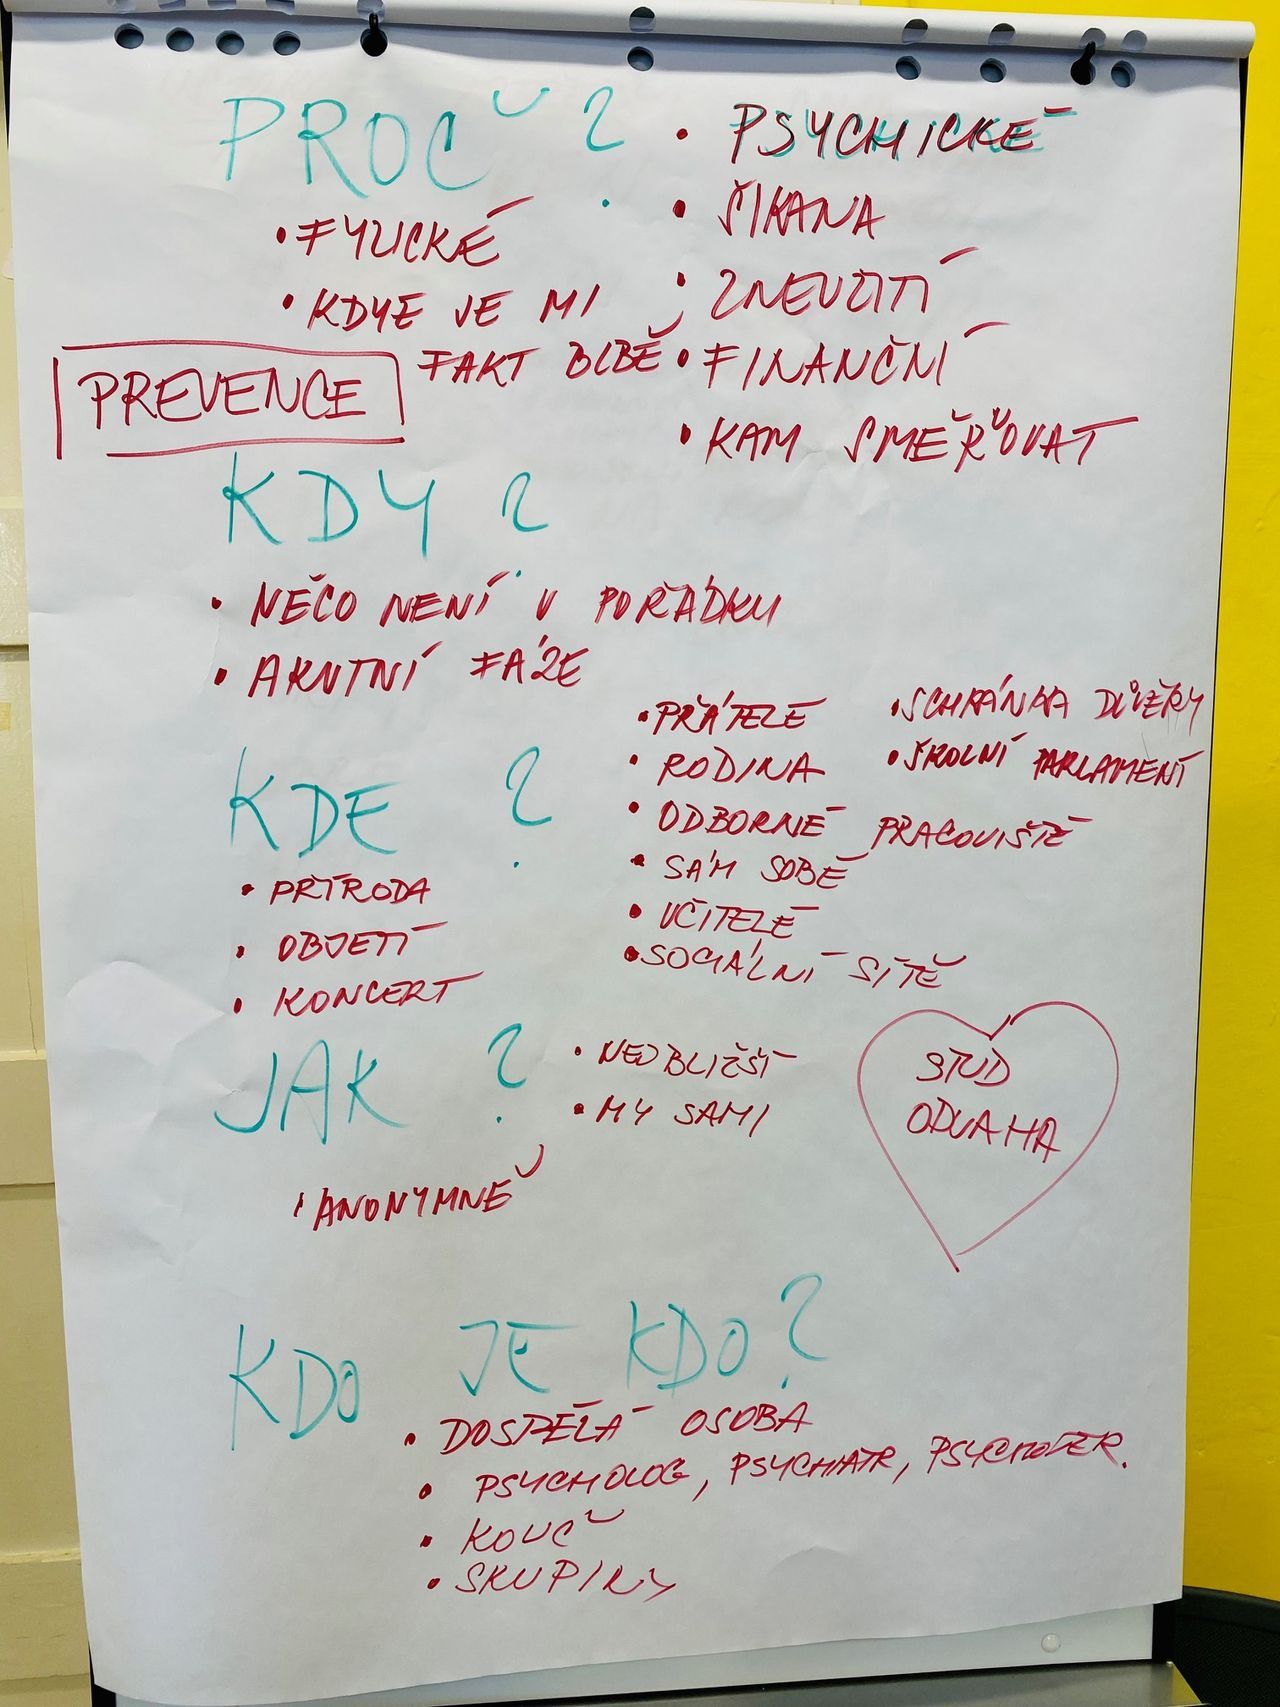 PROČ ?
• FYZICKÉ
• KDYŽ JE MI
FAKT BLBĚ
PREVENCE
• PSYCHICKÉ
• ŠIKANA
• ZNEUŽITÍ
• FINANČNÍ
• KAM SMĚŘOVAT
KDY ?
• NĚČO NENÍ V POŘÁDKU
• AKUTNÍ FÁZE
KDE ?
• PŘÍRODA
• OBJETÍ
• KONCERT
• PŘÁTELÉ
• RODINA
• ODBORNÉ PRACOVIŠTĚ
• SÁM SOBĚ
• UČITELÉ
• SOCIÁLNÍ SÍTĚ
• SCHRÁNKA DŮVĚRY
• ŠKOLNÍ PARLAMENT
JAK ?
• NEJBLIŽŠÍ
• MY SAMI
• ANONYMNĚ
STUD
ODVAHA
KDO JE KDO ?
• DOSPĚLÁ OSOBA
• PSYCHOLOG, PSYCHIATR, PSYCHOTER.
• KOUČ
• SKUPINY